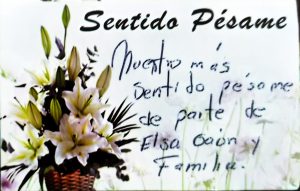 Sentido Pésame
Nuestro más
sentido pésame
de parte de
Elsa Gaón y
Familia.